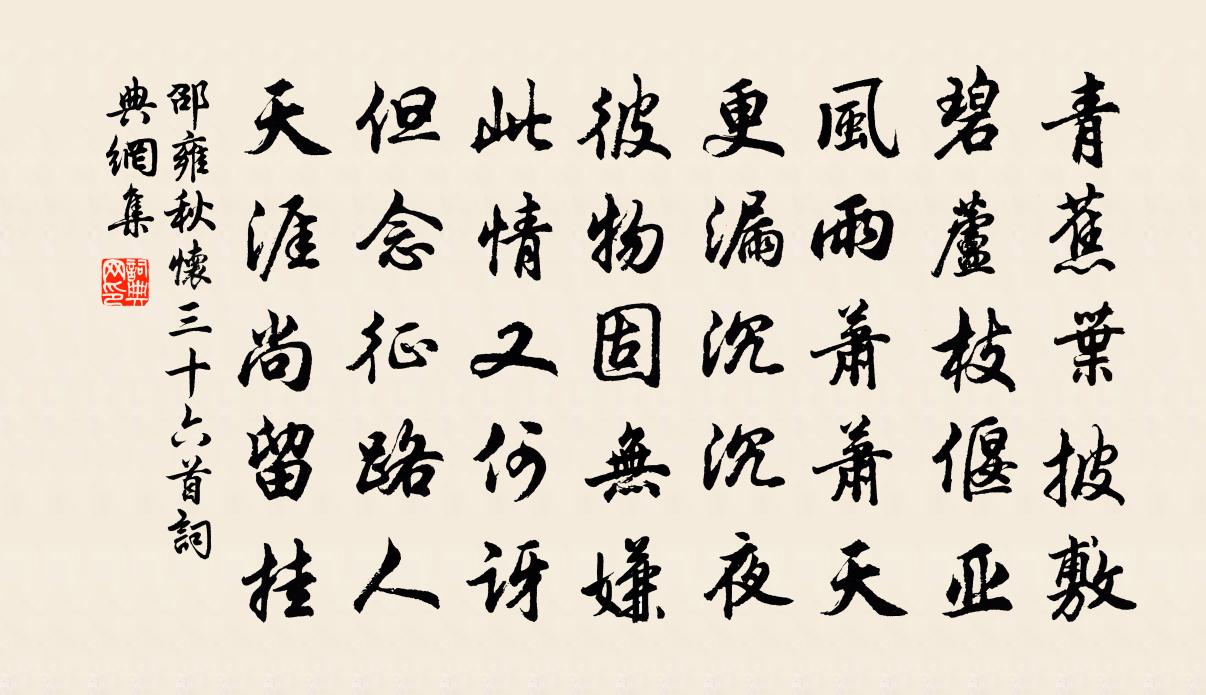 青蕉葉披敷
碧蘆枝偃亚
風雨蕭蕭天
更漏沉沉夜
彼物固無嫌
此情又何訝
但念征路人
天涯尚留挂
邵雍秋懷三十六首詞
典網集
詞典
网印